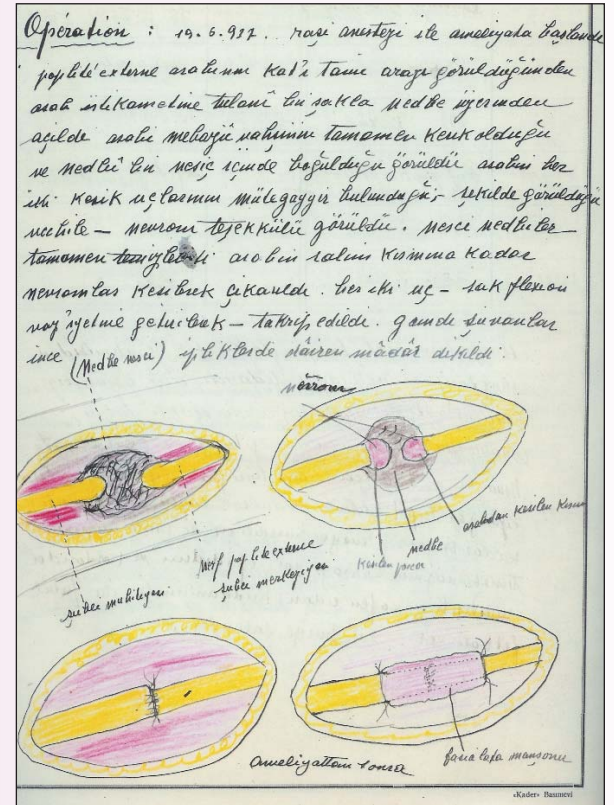 Opération : 19.6.937. raşi anestezi ile ameliyata başlandı
poplité externe asabının kat'ı tam arazı görüldüğünden
asab istikametine tulanî bir şakla nedbe üzerinden
açıldı asabı tamamen kesik olduğu
ve nedbî bir nesiç içinde boğulduğu görüldü asabın her
iki kesik uçlarının mütegayyir bulunduğu, şekilde görüldüğü
veçhile – nevrom teşekkülü görüldü. nesci nedbîler
tamamen temizlendi asabın salim kısmına kadar
nevromlar kesilerek çıkarıldı. her iki uç – sak flexion
vaz'iyetine getirilerek – takrip edildi. gomde şuvanlar
ince ipliklerle dâiren mâdâr dikildi.
(Nedbe nesci)
nörrom
nerf poplité externe
şubei merkeziyesi
şubei muhitiyesi
kesilen
nedbe
asabdan kesilen kısım
Ameliyattan sonra
fascia lata manşonu
«Kader» Basımevi